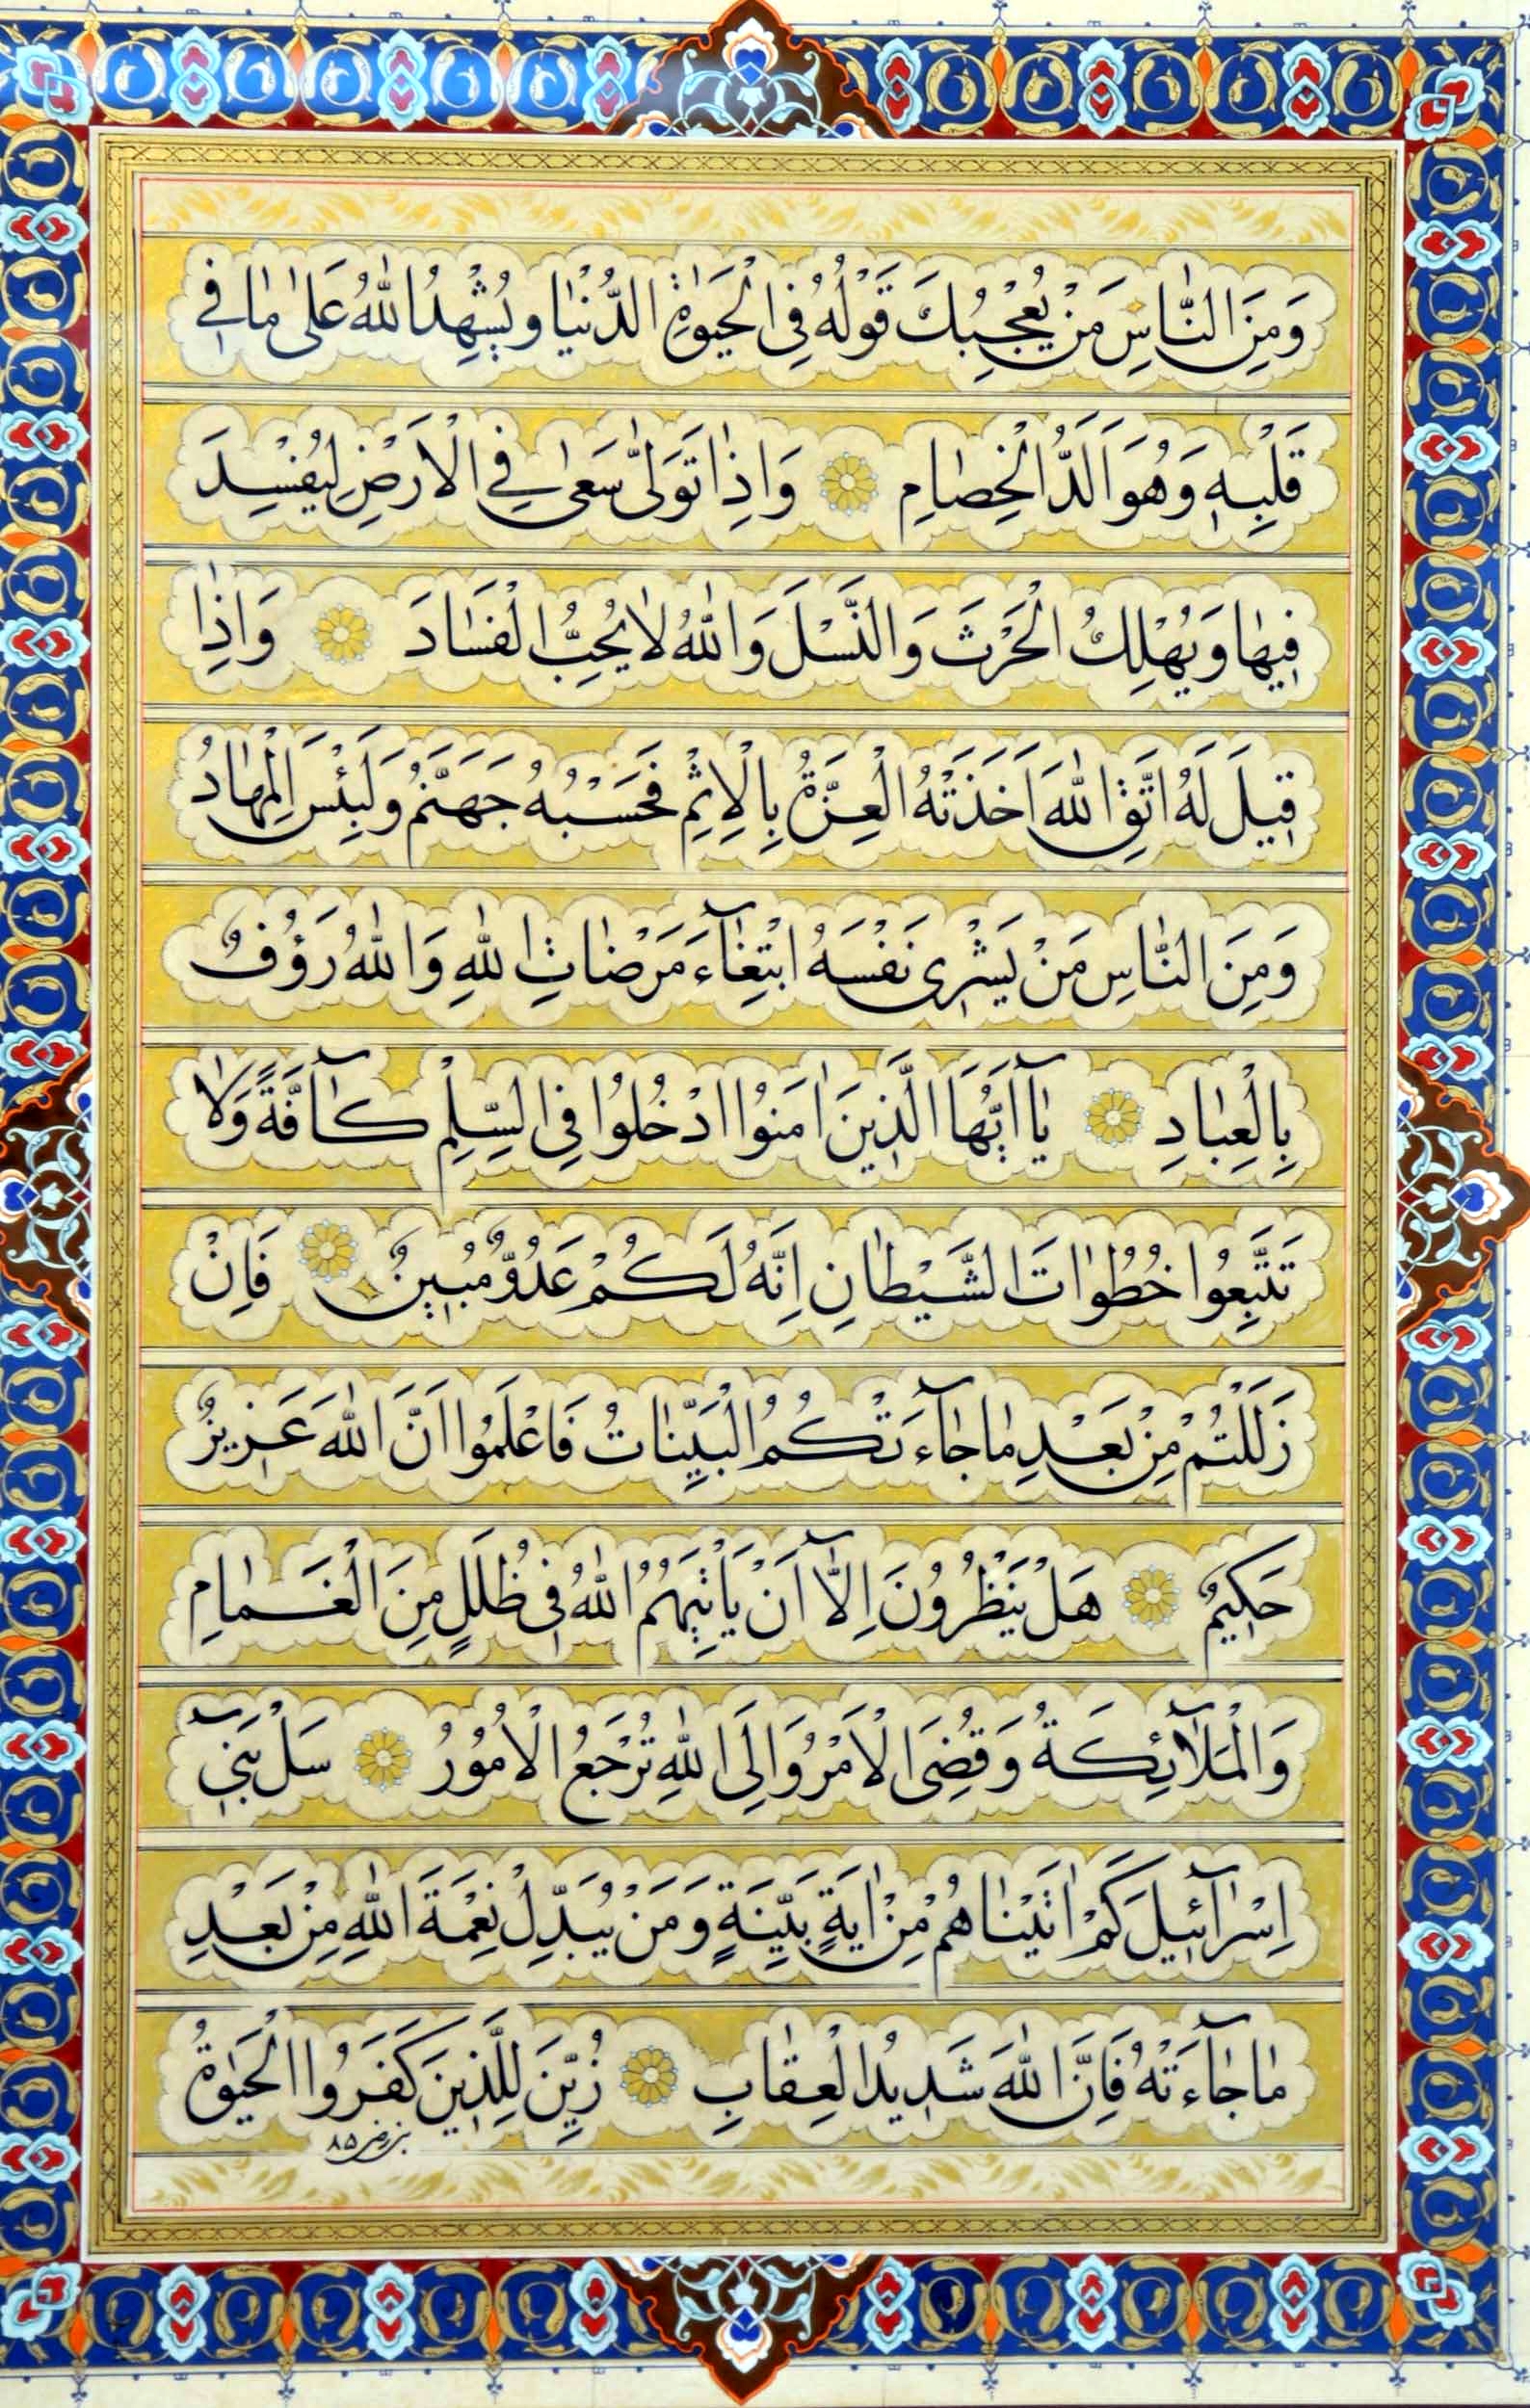 وَمِنَ النّٰاسِ مَنْ يُعْجِبُكَ قَوْلُهُ فِى الْحَيَوٰةِ الدُّنْيٰا وَيُشْهِدُ اللّٰهَ عَلىٰ مٰا فِي
قَلْبِهِ وَهُوَ اَلَدُّ الْخِصٰامِ وَاِذٰا تَوَلّٰى سَعىٰ فِي الْاَرْضِ لِيُفْسِدَ
فِيهٰا وَيُهْلِكَ الْحَرْثَ وَالنَّسْلَ وَاللّٰهُ لٰا يُحِبُّ الْفَسٰادَ وَاِذٰا
قِيلَ لَهُ اتَّقِ اللّٰهَ اَخَذَتْهُ الْعِزَّةُ بِالْاِثْمِ فَحَسْبُهُ جَهَنَّمُ وَلَبِئْسَ الْمِهٰادُ
وَمِنَ النّٰاسِ مَنْ يَشْرِى نَفْسَهُ ابْتِغٰآءَ مَرْضٰاتِ اللّٰهِ وَاللّٰهُ رَؤُفٌ
بِالْعِبٰادِ يٰآ اَيُّهَا الَّذِينَ اٰمَنُوا ادْخُلُوا فِى السِّلْمِ كٰآفَّةً وَلٰا
تَتَّبِعُوا خُطُوٰاتِ الشَّيْطٰانِ اِنَّهُ لَكُمْ عَدُوٌّ مُبِينٌ فَاِنْ
زَلَلْتُمْ مِنْ بَعْدِ مٰا جٰآءَتْكُمُ الْبَيِّنٰاتُ فَاعْلَمُوا اَنَّ اللّٰهَ عَزِيزٌ
حَكِيمٌ هَلْ يَنْظُرُونَ اِلّٰآ اَنْ يَاْتِيَهُمُ اللّٰهُ فِى ظُلَلٍ مِنَ الْغَمٰامِ
وَالْمَلٰآئِكَةُ وَقُضِىَ الْاَمْرُ وَاِلَى اللّٰهِ تُرْجَعُ الْاُمُورُ سَلْ بَنِىٓ
اِسْرٰآئِيلَ كَمْ اٰتَيْنٰاهُمْ مِنْ اٰيَةٍ بَيِّنَةٍ وَمَنْ يُبَدِّلْ نِعْمَةَ اللّٰهِ مِنْ بَعْدِ
مٰا جٰآءَتْهُ فَاِنَّ اللّٰهَ شَدِيدُ الْعِقٰابِ زُيِّنَ لِلَّذِينَ كَفَرُوا الْحَيَوٰةُ
۸۵